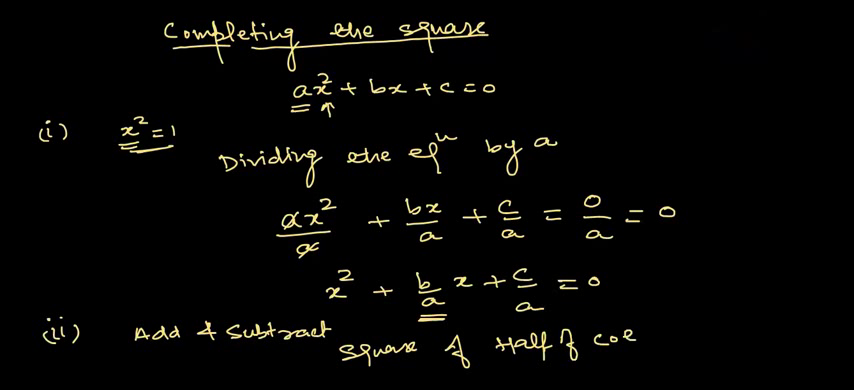 Completing the square
ax² + bx + c = 0
(i) x² = 1
Dividing the eqⁿ by a
ax²/a + bx/a + c/a = 0/a = 0
x² + b/a x + c/a = 0
(ii) Add & Subtract square of Half of coe